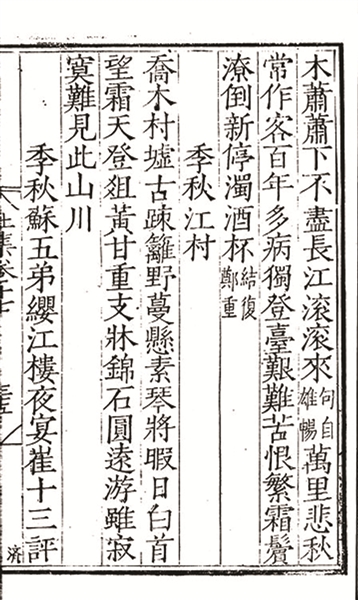 木蕭蕭下不盡長江滾滾來句自雄暢萬里悲秋
常作客百年多病獨登臺艱難苦恨繁霜鬢
潦倒新停濁酒杯結復鄭重
季秋江村
喬木村墟古踈籬野蔓懸素琴將暇日白首
望霜天登俎黃甘重支牀錦石圓遠游雖寂
寞難見此山川
季秋蘇五弟纓江樓夜宴崔十三評